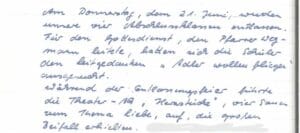 Am Donnerstag, dem 21. Juni, wurden
unsere vier Abschlussklassen entlassen.
Für den Gottesdienst, den Pfarrer Weg-
mann leitete, hatten sich die Schüler
den Leitgedanken „Adler wollen fliegen"
ausgesucht.
Während der Entlassungsfeier führte
die Theater-AG, vier Szenen
zum Thema Liebe, auf, die großen
Beifall erhielten.